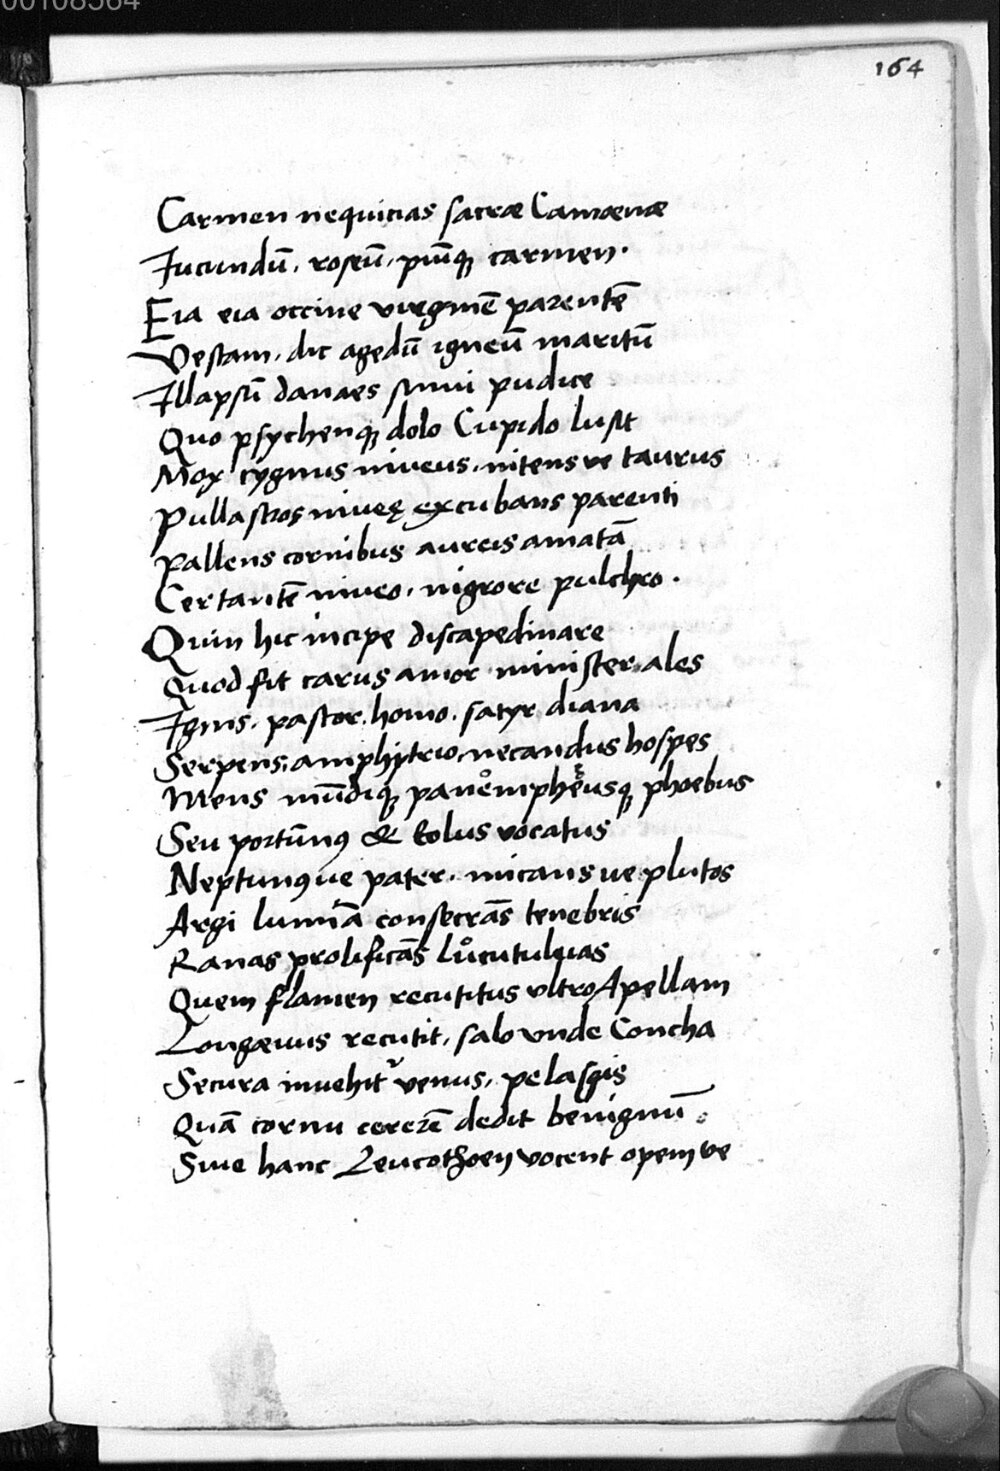 00108564
164
Carmen nequicias sacræ Camœnæ
Jucundū, roseū, piūq̨ carmen.
Eia eia occine virginē parentē
Vestam, dic agedū igneū maritū
Illapsū danaes sinui pudice
Quo psychenq̨ dolo Cupido lusit
Mox cygnus niveus, nitens ve taurus
Pullastros niveę excubans parenti
Pallens cornibus aureis amatā
Certantē niveo, nigrore pulchro.
Quin hic incipe discapedinare
Quod sit carus amor minister, ales
Ignis, pastor, homo, satyr diana
Serpens, amphitrio, necandus hospes
Mens mūdiq̨ panomphęusq̨ phoebus
Seu portūnꝰ & Eolus vocatus
Neptunꝰue pater, micans ue plutos
Argi lumīa consecrās tenebris
Ranas prolificās
Quem flamen recutitus ultro Apellam
Longævus recutit, salo unde Concha
Secura invehit᷑ venus, pelasgis
Quā cornu cererē dedit benignū
Sive hanc Leucothoen vocent opem ve